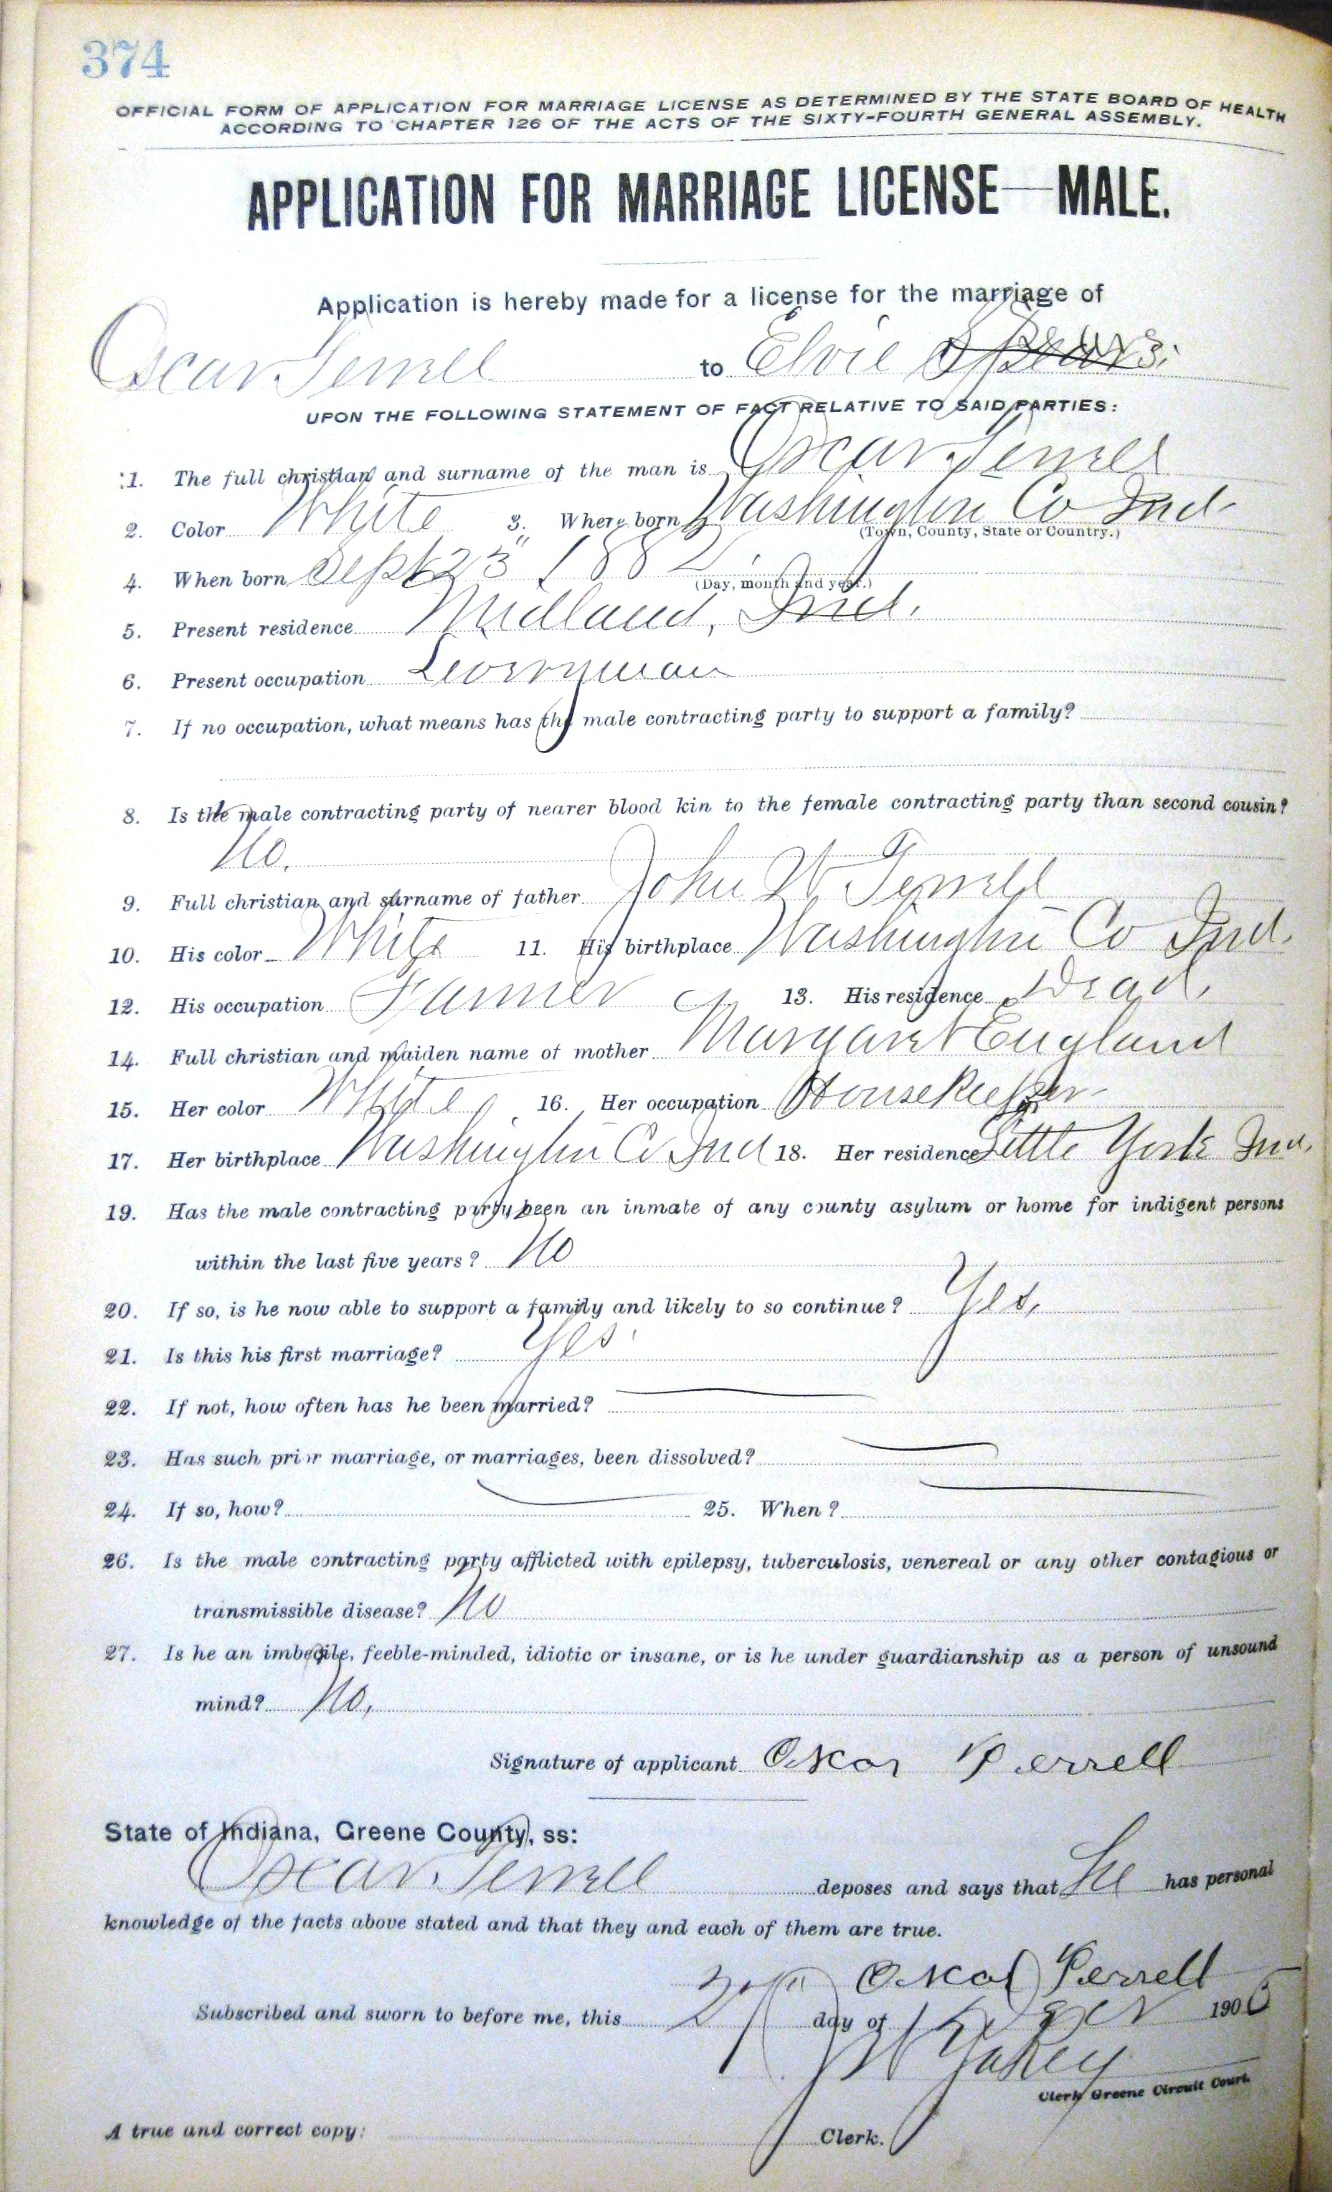 374
OFFICIAL FORM OF APPLICATION FOR MARRIAGE LICENSE AS DETERMINED BY THE STATE BOARD OF HEALTH
ACCORDING TO CHAPTER 126 OF THE ACTS OF THE SIXTY-FOURTH GENERAL ASSEMBLY.
APPLICATION FOR MARRIAGE LICENSE—MALE.
Application is hereby made for a license for the marriage of
Oscar Terrell to Elvie
UPON THE FOLLOWING STATEMENT OF FACT RELATIVE TO SAID PARTIES:
1. The full christian and surname of the man is Oscar Terrell
2. Color White 3. Where born Washington Co Ind.
(Town, County, State or Country.)
4. When born Sept 23" 1882.
(Day, month and year.)
5. Present residence Midland, Ind.
6. Present occupation Liveryman
7. If no occupation, what means has the male contracting party to support a family?
8. Is the male contracting party of nearer blood kin to the female contracting party than second cousin?
No.
9. Full christian and surname of father John W Terrell
10. His color White 11. His birthplace Washington Co Ind.
12. His occupation Farmer 13. His residence Dead.
14. Full christian and maiden name of mother Margaret England
15. Her color White 16. Her occupation Housekeeper
17. Her birthplace Washington Co Ind 18. Her residence Little York Ind.
19. Has the male contracting party been an inmate of any county asylum or home for indigent persons
within the last five years? No
20. If so, is he now able to support a family and likely to so continue? Yes,
21. Is this his first marriage? Yes
22. If not, how often has he been married?
23. Has such prior marriage, or marriages, been dissolved?
24. If so, how? 25. When?
26. Is the male contracting party afflicted with epilepsy, tuberculosis, venereal or any other contagious or
transmissible disease? No
27. Is he an imbecile, feeble-minded, idiotic or insane, or is he under guardianship as a person of unsound
mind? No,
Signature of applicant Oskar Terrell
State of Indiana, Greene County, ss:
Oscar Terrell deposes and says that he has personal
knowledge of the facts above stated and that they and each of them are true.
Oskar Terrell
Subscribed and sworn to before me, this day of 1906
Clerk Greene Circuit Court.
A true and correct copy: Clerk.